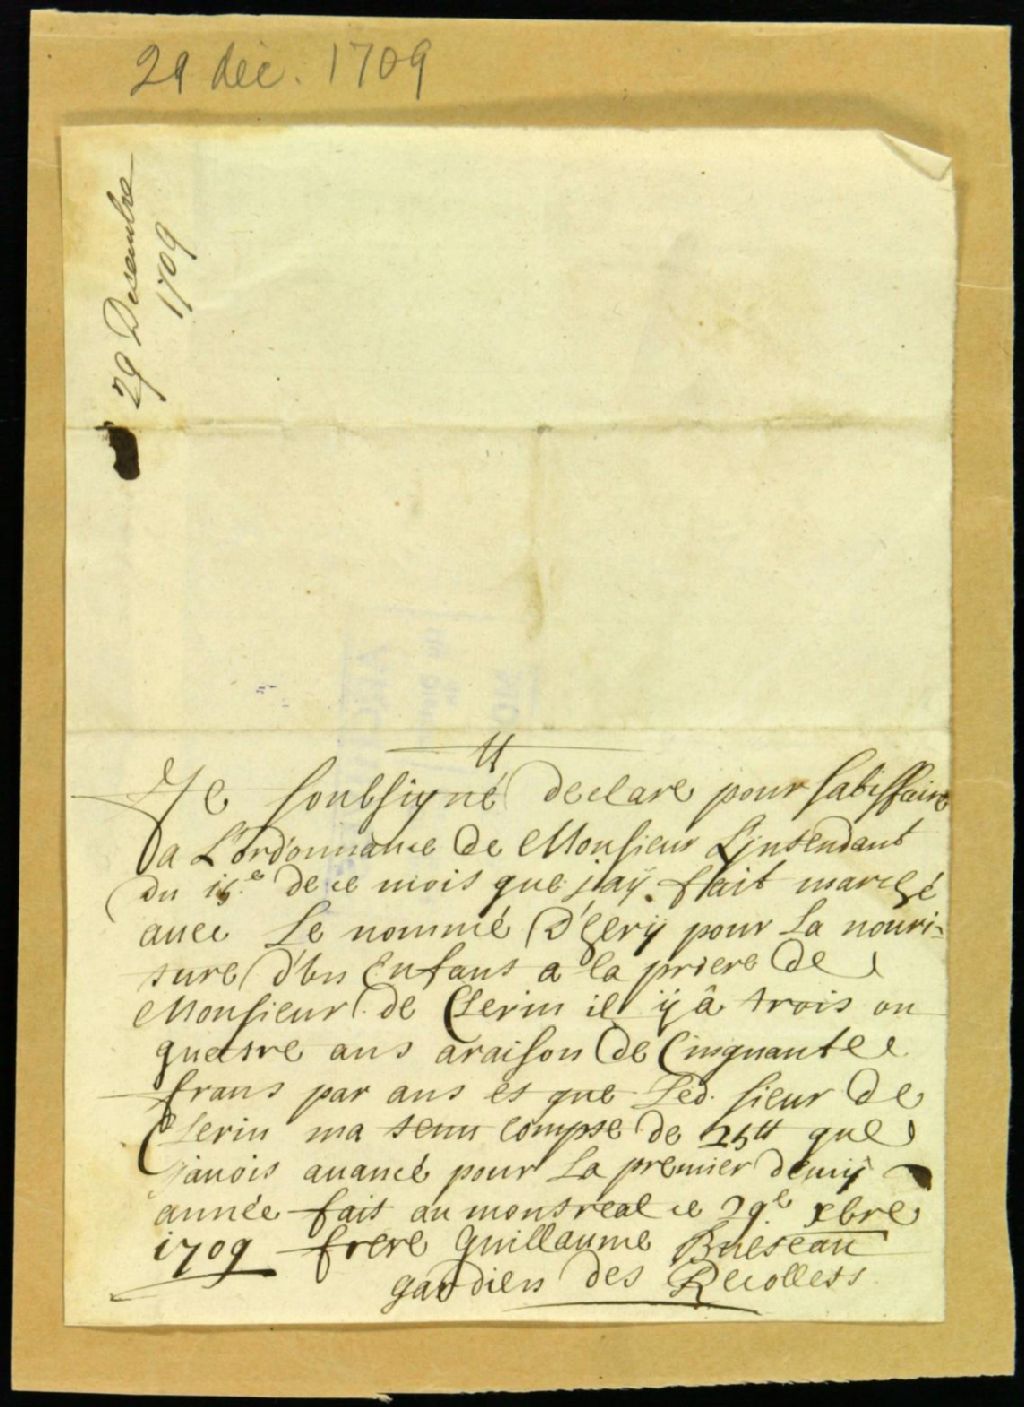 29 dec. 1709
29 Desembre
1709
Je Soubsigné declare pour Satisffaire
a L'ordonnance de Monsieur L'jntendant
du 15.e de ce mois que j'aÿ fait marché
avec Le nommé D'Gerÿ pour La nouri-
ture d'un Enfans a la priere de
Monsieur de Clerin il ÿ â trois ou
quatre ans araison de Cinquante
frans par ans et que Led. sieur de
Clerin ma tenu compte de 25tt que
j'auois auancé pour La premier demÿ
année fait au montreal ce 29.e xbre
1709 frere Guillaume Bueteau
gardiens des Recollets